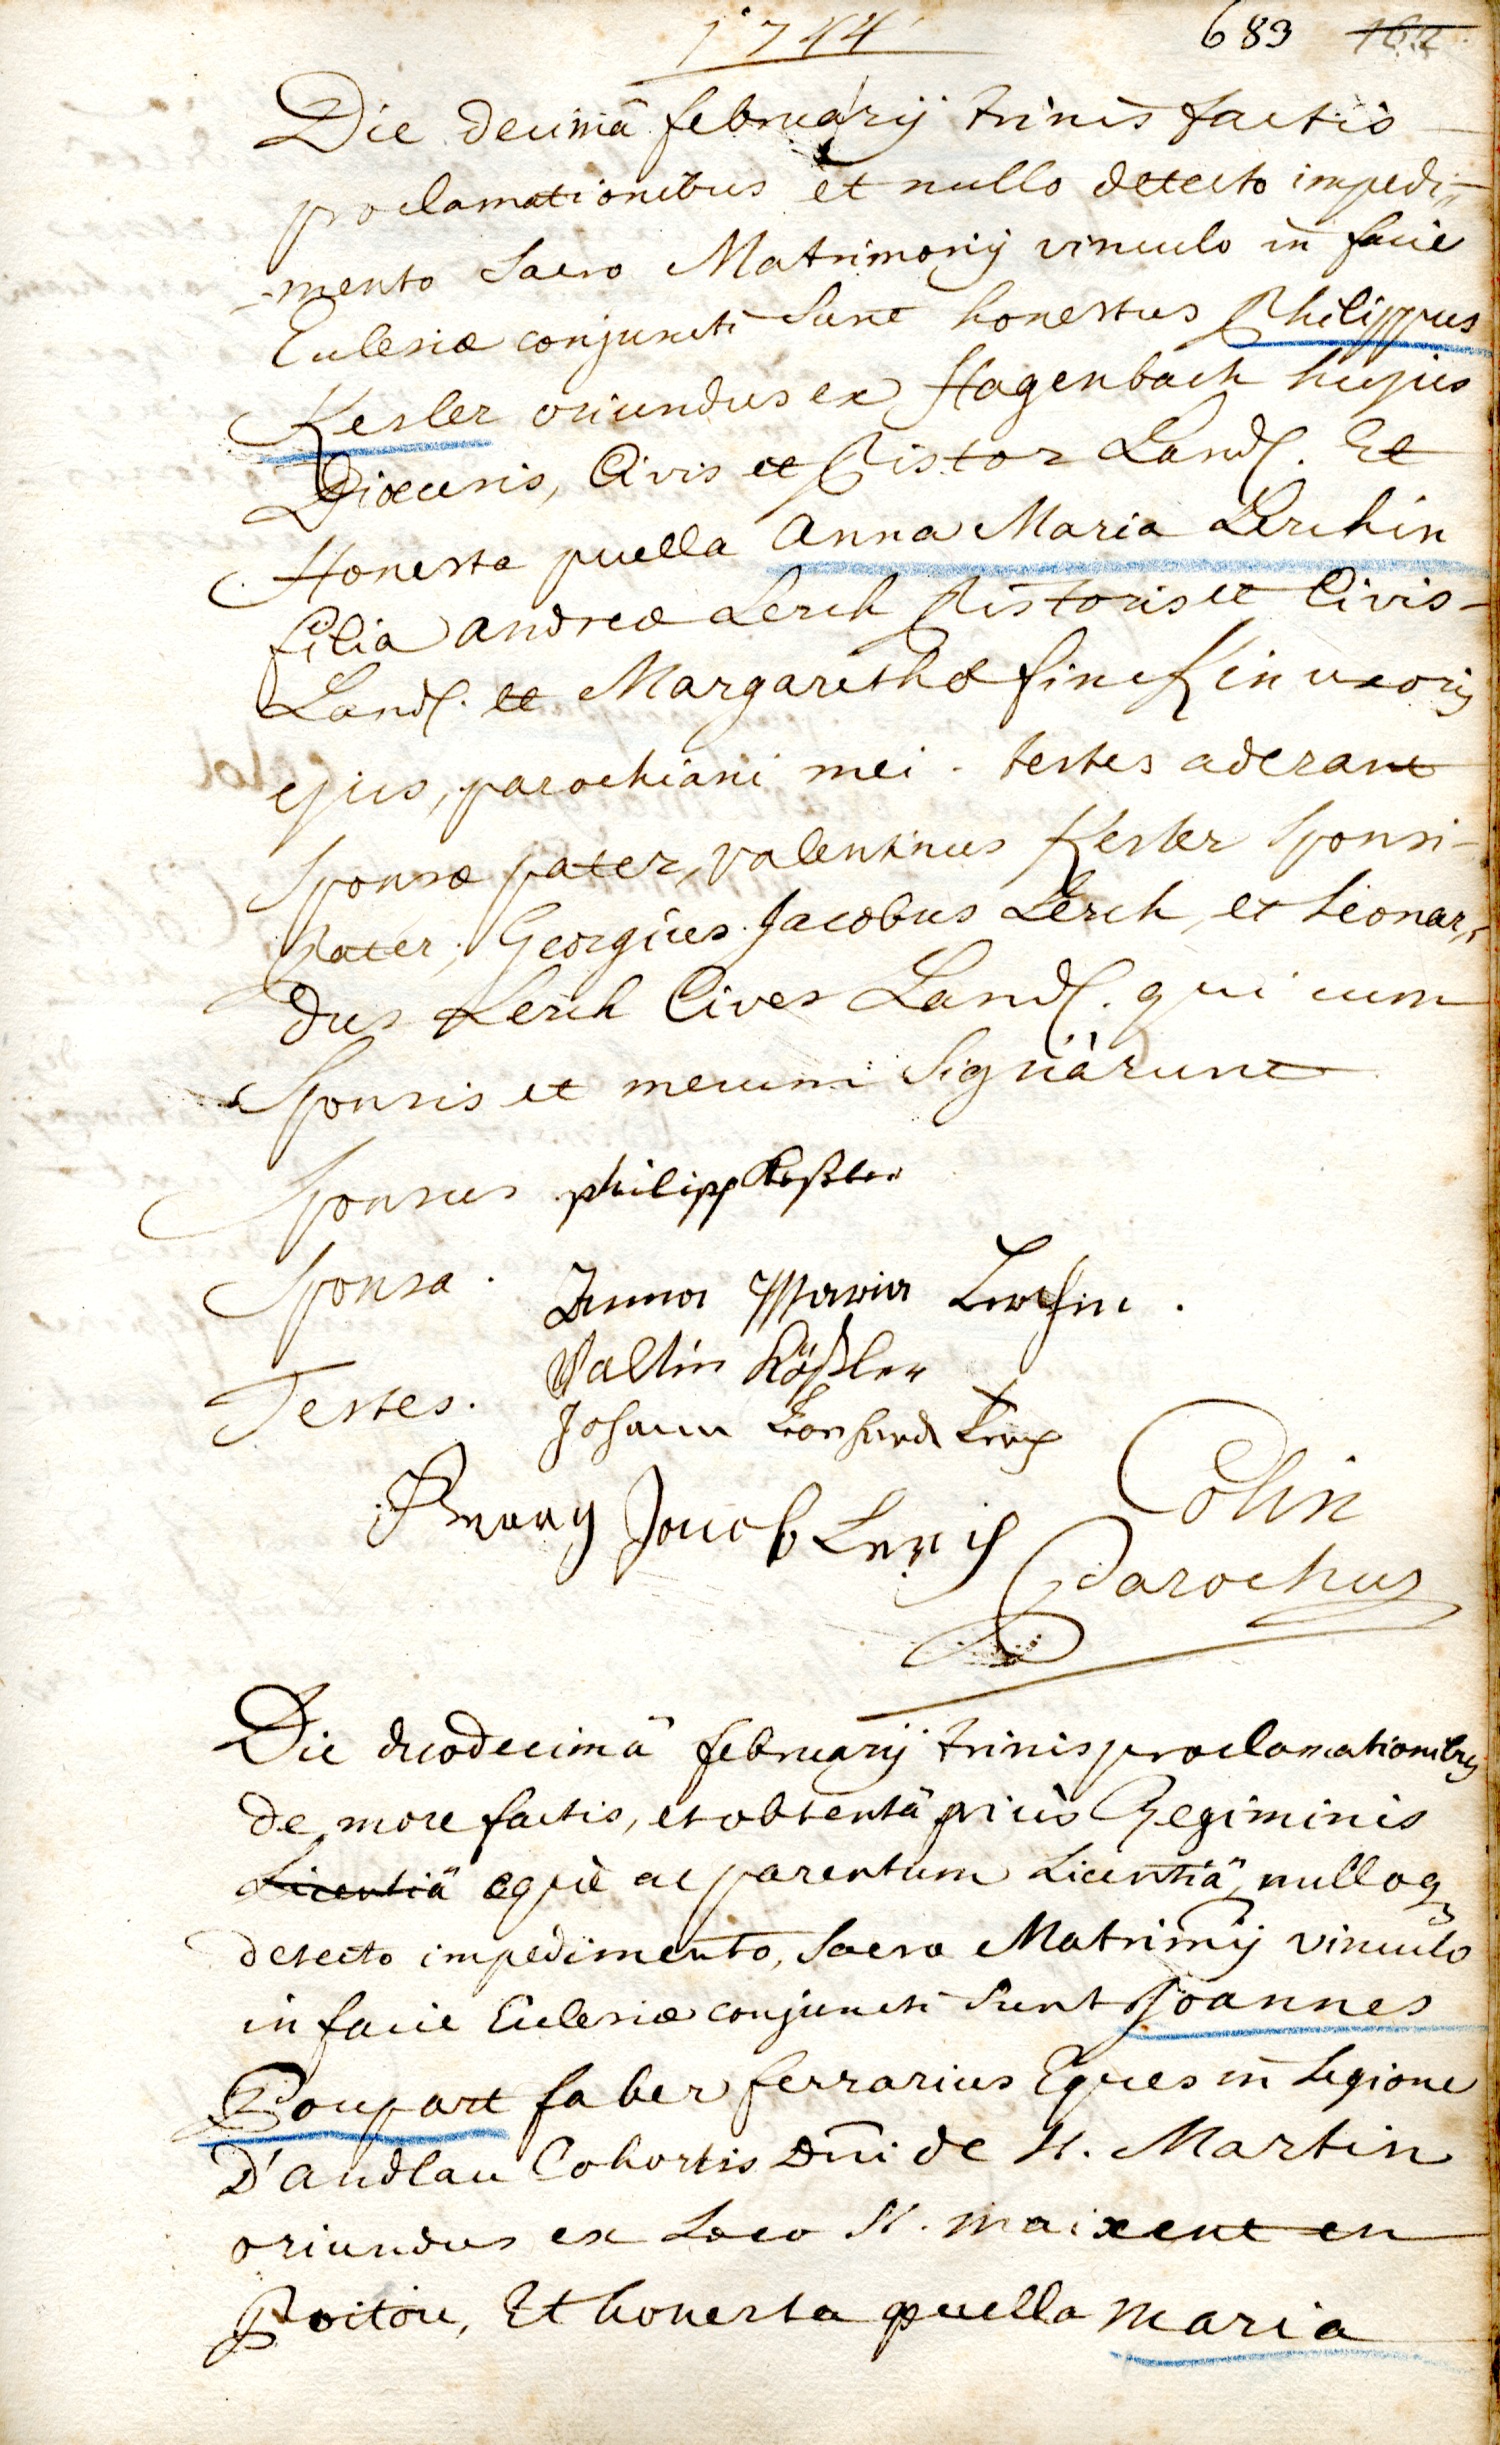 1744
683 162
Die decimâ februarij trinis factis
proclamationibus et nullo detecto impedi-
-mento Sacro Matrimonij vinculo in facie
Eclesiæ conjuncti Sunt honestus Philippus
Kesler oriundus ex Hagenbach hujus
Diœcesis, Civis et Pistor Land. Et
Honesta puella Anna Maria Lerchin
filia Andreæ Lerch Pistoris et Civis
Land. et Margarethæ finckin uxoris
ejus, parochiani mei. testes aderant
Sponsæ pater, Valentinus Kesler Sponsi
Pater, Georgius Jacobus Lerch, et Leonar-
dus Lerch Cives Land. qui cum
Sponsis et mecum Signârunt
Sponsus philipp Keßler
Sponsa. Anna Maria Lerchin.
Testes. Valtin Käßler
Johann Leonhard Lerch
Georg Jacob Lerch
Colin
Parochus
Die duodecimâ februarij trinis proclamationibus
de more factis, et obtentâ priùs Regiminis
Licentiâ æquè ac parentum Licentiâ, nulloq
detecto impedimento, Sacro Matrimonij vinculo
in facie Eclesiæ conjuncti Sunt Joannes
Poupart faber ferrarius Eques in Legione
D'andlau Cohortis Dni de St. Martin
oriundus ex Loco St. maixent en
Poitou, Et honesta puella Maria